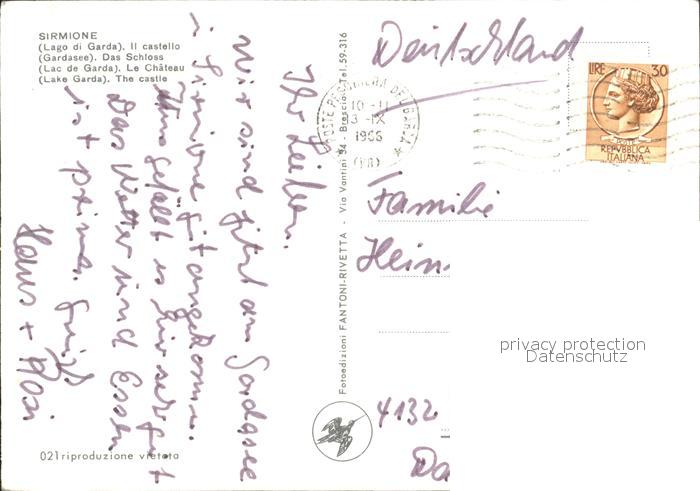 SIRMIONE
(Lago di Garda). Il castello
(Gardasee). Das Schloss
(Lac de Garda). Le Château
(Lake Garda). The castle
Ihr Lieben.
Wir sind jetzt am Gardasee
in Sirmione gut angekommen.
Uns gefällt es hier sehr gut
Das Wetter und Essen
ist prima. Grüße
Hans + Rosi
021 riproduzione vietata
Fotoedizioni FANTONI-RIVETTA - Via Vantini 94 - Brescia - Tel. 59-316
Deutschland
POSTE PESCHIERA DEL GARDA
10-11
3-IX
1966
(VR)
LIRE 30
POSTE
REPVBBLICA
ITALIANA
Familie
Hein
4132
Da
privacy protection
Datenschutz